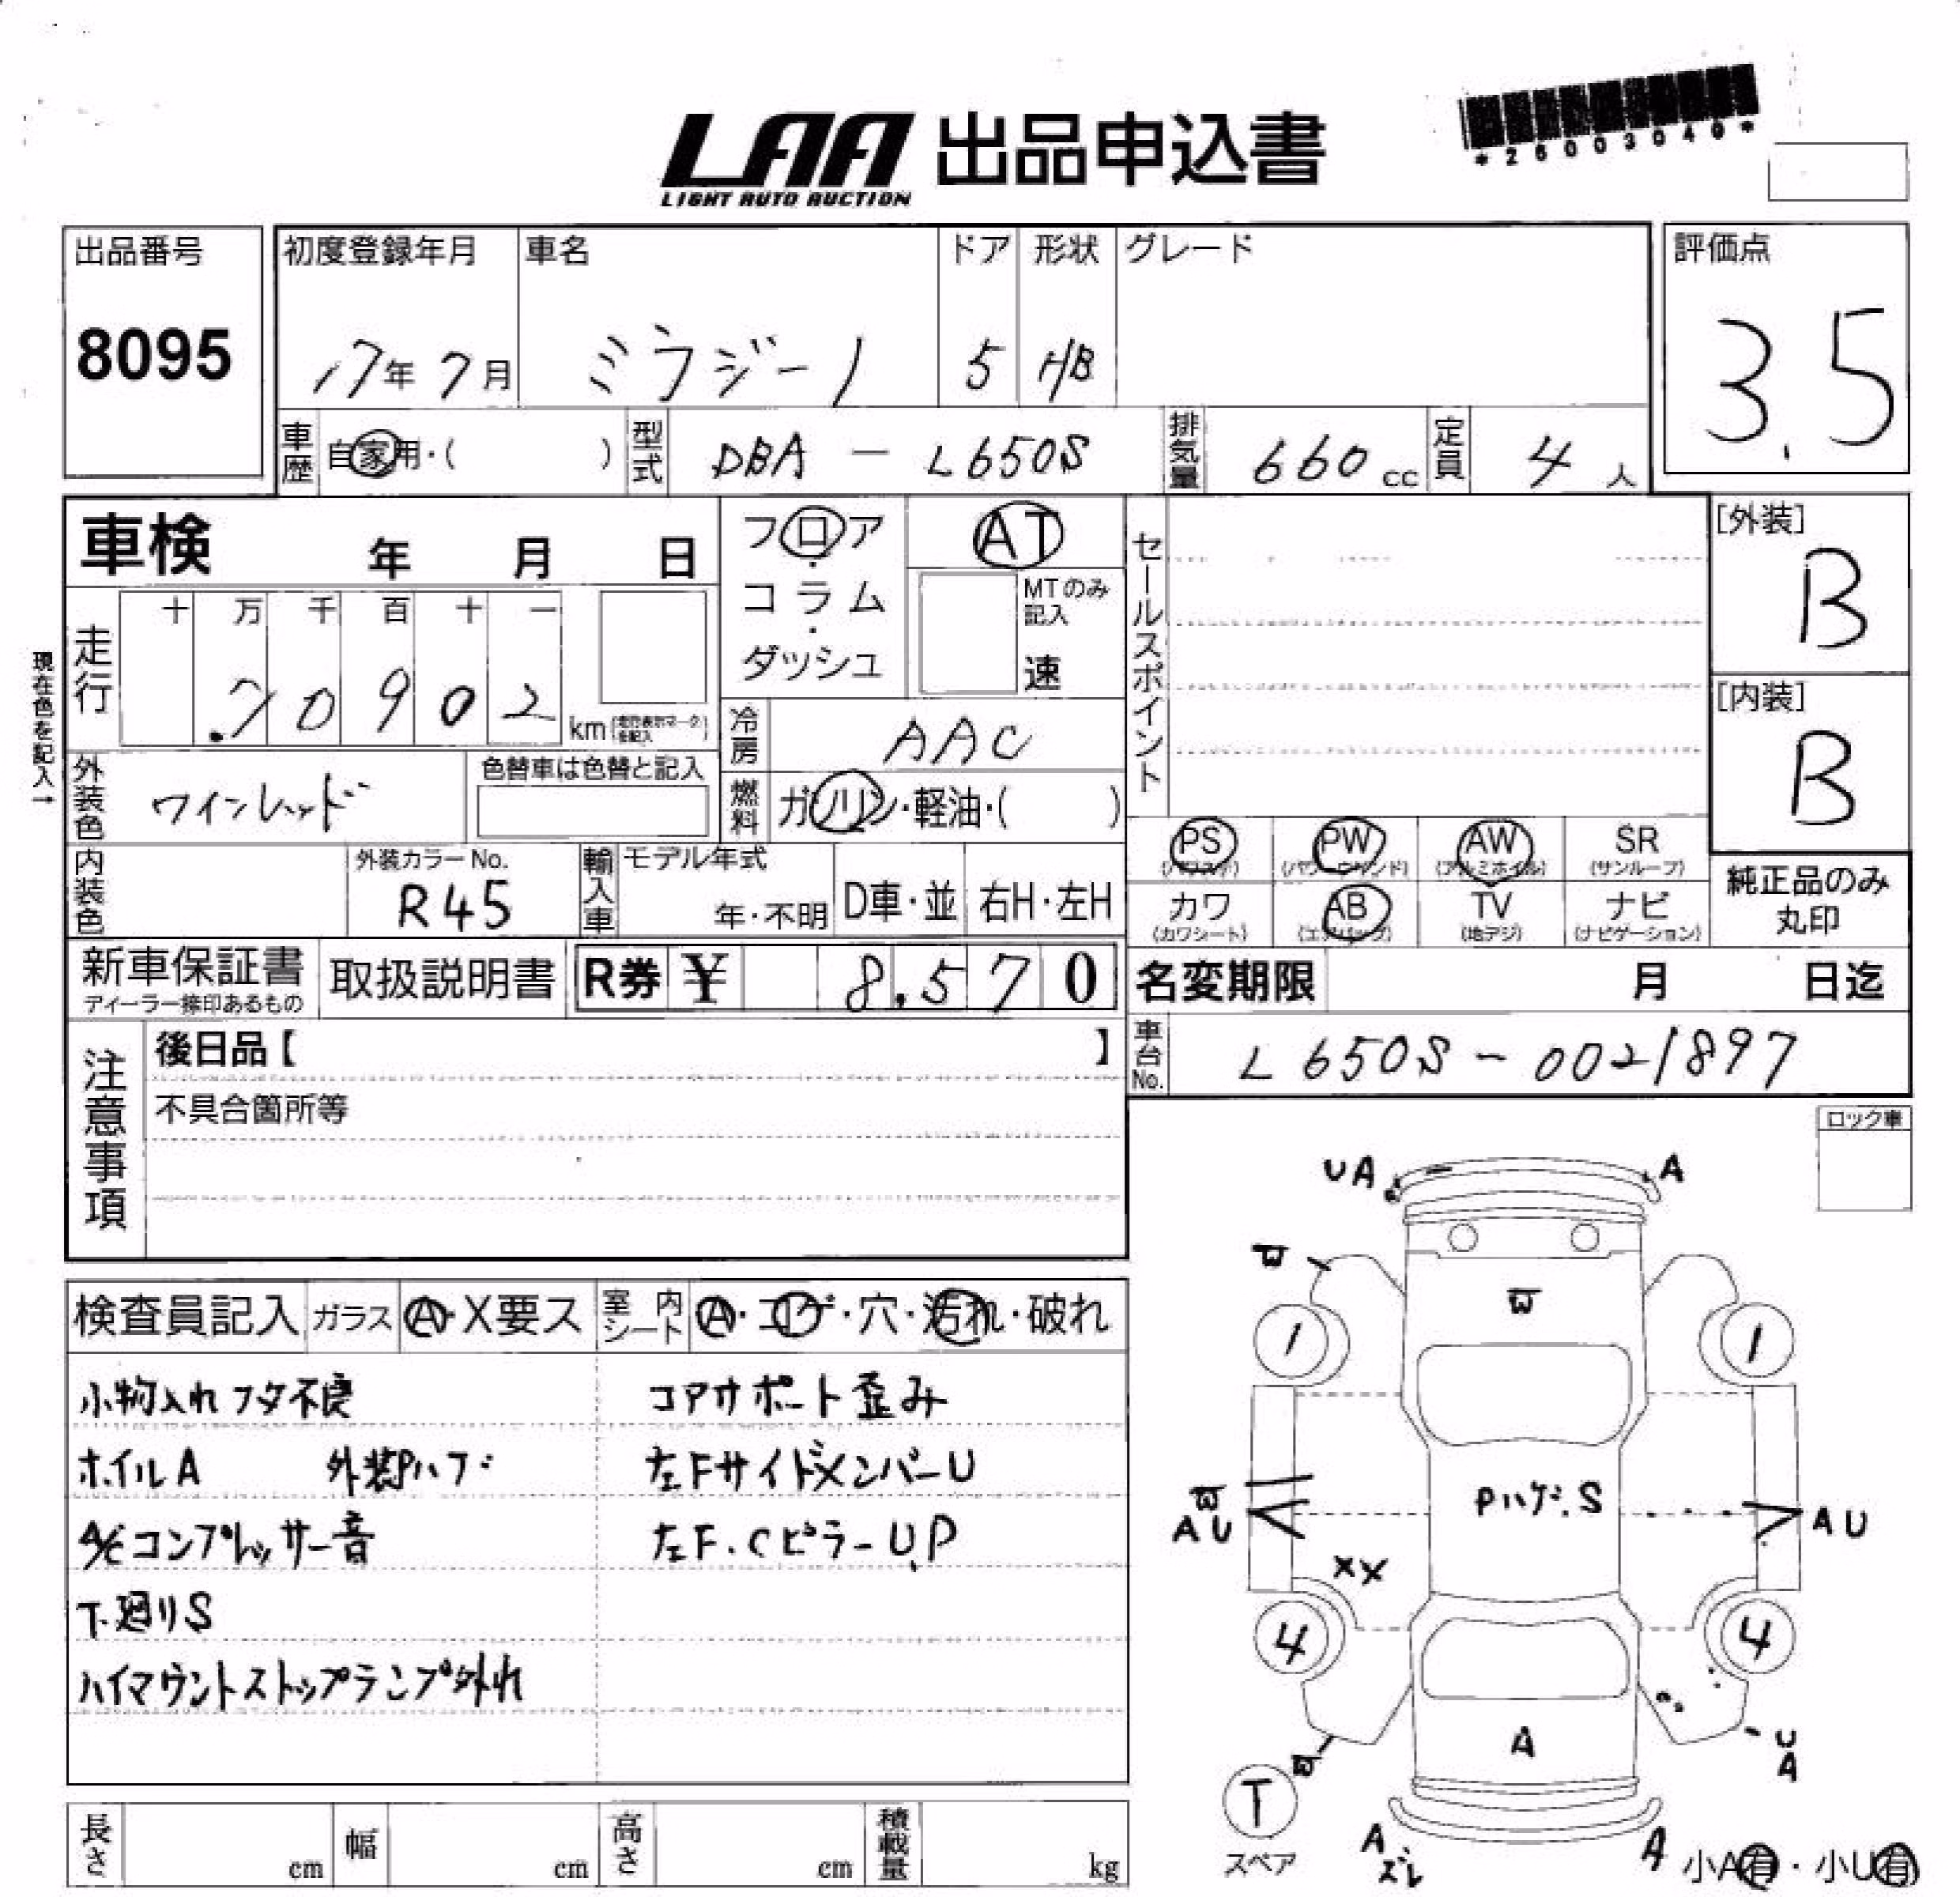 LAA 出品申込書
LIGHT AUTO AUCTION
*26003040*
出品番号
8095
初度登録年月
17年7月
車名
ミラジーノ
ドア
5
形状
HB
グレード
評価点
3.5
車歴 自家用・( )
型式 DBA - L650S
排気量 660 cc
定員 4 人
車検 年 月 日
フロア・コラム・ダッシュ
AT
MTのみ記入
速
セールスポイント
[外装]
B
[内装]
B
現在色を記入→
走行
十 万 千 百 十 一
70902 km (走行表示マークを記入)
冷房 AAC
燃料 ガソリン・軽油・( )
外装色 ワインレッド
色替車は色替と記入
内装色
外装カラーNo.
R45
輸入車
モデル年式
年・不明
D車・並
右H・左H
PS (パワステ)
PW (パワーウィンド)
AW (アルミホイル)
SR (サンルーフ)
カワ (カワシート)
AB (エアバッグ)
TV (地デジ)
ナビ (ナビゲーション)
純正品のみ丸印
新車保証書
ディーラー捺印あるもの
取扱説明書
R券 ¥ 8,570
名変期限 月 日迄
車台No. L650S-0021897
注意事項
後日品【 】
不具合箇所等
ロック車
検査員記入
ガラス A・X要ス
室内シート A・コゲ・穴・汚れ・破れ
小物入れフタ不良
ホイルA 外装Pハゲ
A/Cコンプレッサー音
下廻りS
ハイマウントストップランプ外れ
コアサポート歪み
左FサイドメンバーU
左F.CピラーU,P
UA
A
W
W
1
1
W
AU
Pハゲ.S
AU
XX
4
4
A
W
U
A
T
スペア
A
ズレ
A
小A有・小U有
長さ cm
幅 cm
高さ cm
積載量 kg